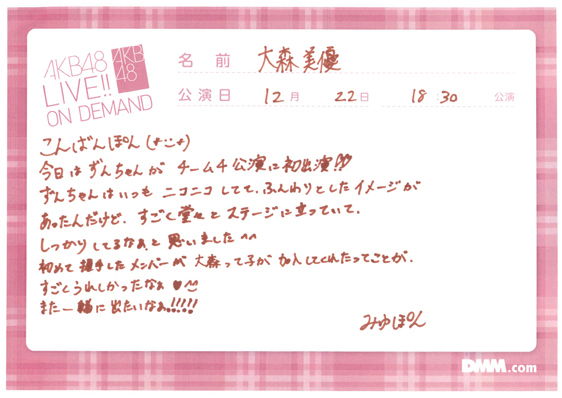 AKB48
LIVE!!
ON DEMAND
AKB
48
名前 大森美優
公演日 12月 22日 18:30 公演
こんばんぽん(+こ+)
今日はずんちゃんがチーム4公演に初出演!!
ずんちゃんはいつもニコニコしてて、ふんわりとしたイメージが
あったんだけど、すごく堂々とステージに立っていて、
しっかりしてるなぁと思いました^^
初めて握手したメンバーが大森って子が加入してくれたってことが、
すごくうれしかったなぁ♥^^
また一緒に出たいなぁ!!!!!
みゆぽん
DMM.com